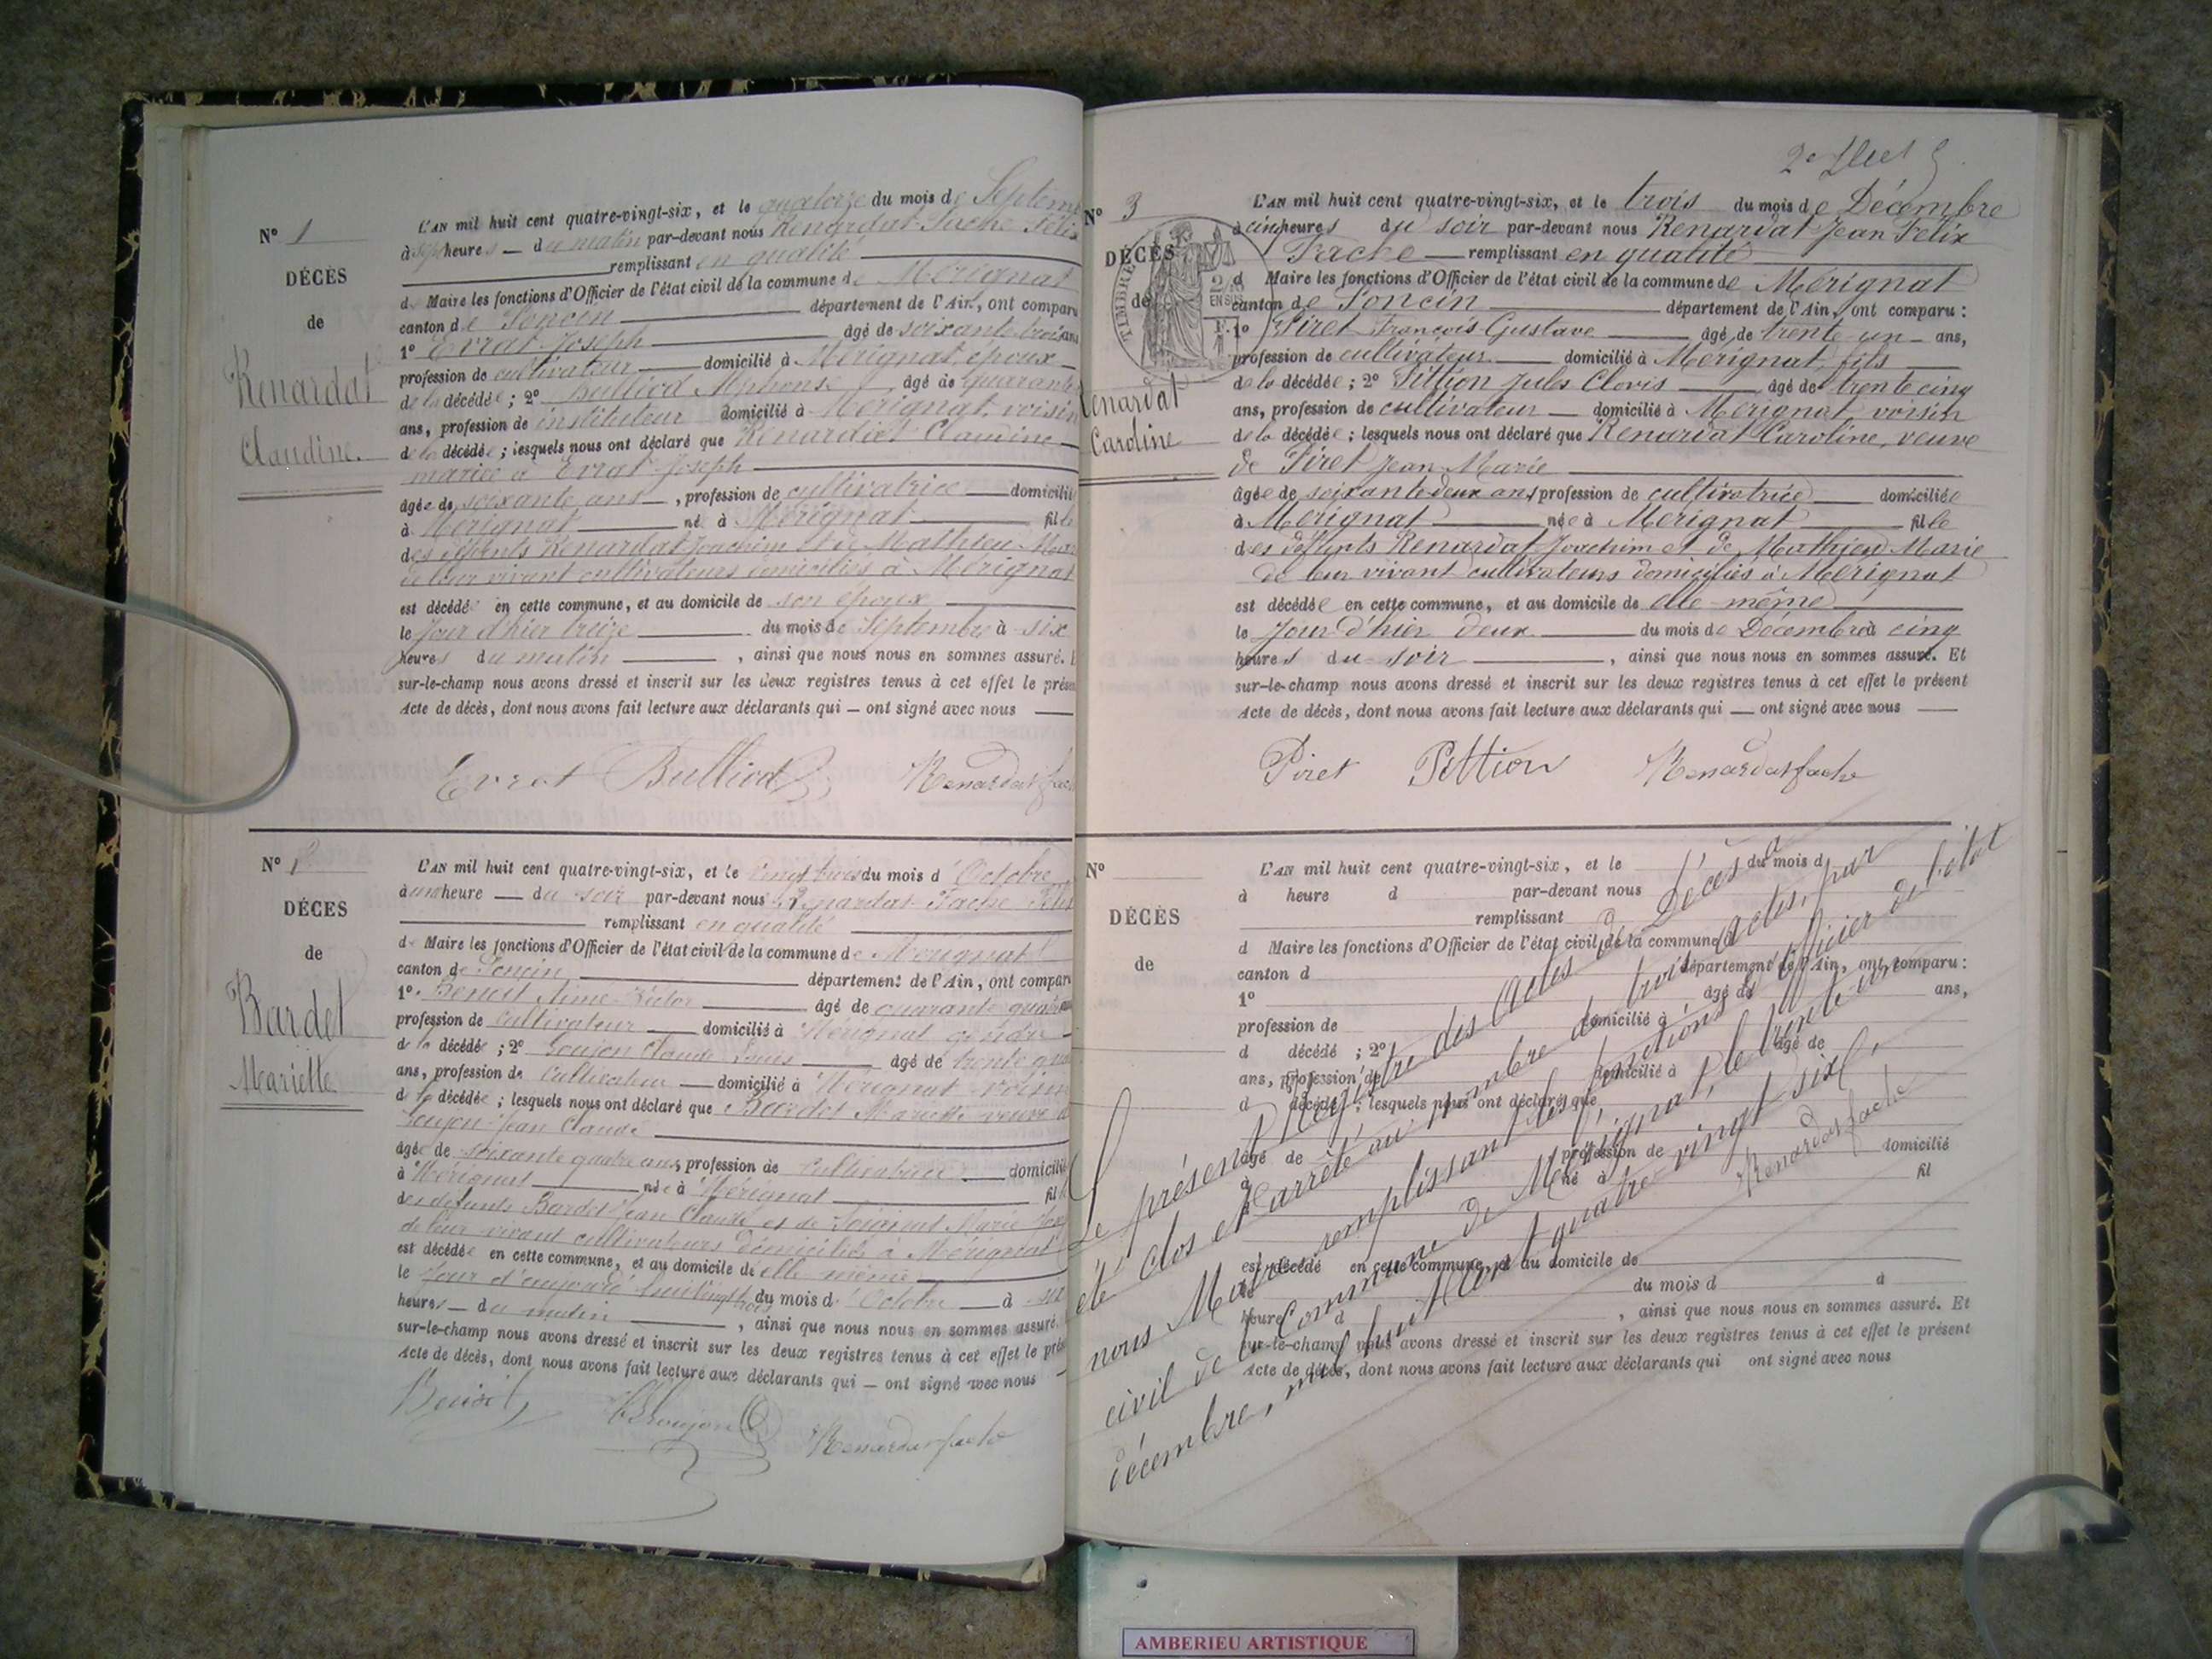 N° 1
DÉCÈS
de
Renardat
Claudine.
L'AN mil huit cent quatre-vingt-six, et le quatorze du mois de Septem
à sept heures — du matin par-devant nous Renardat-Fache Félix
remplissant en qualité
de Maire les fonctions d'Officier de l'état civil de la commune de Mérignat
canton de Poncin département de l'Ain, ont comparu
1° Evrat Joseph âgé de soixante trois ans
profession de cultivateur domicilié à Mérignat, époux
de la décédée ; 2° Bulliod Alphonse âgé de quarante
ans, profession de instituteur domicilié à Mérignat, voisin
de la décédée ; lesquels nous ont déclaré que Renardat Claudine
mariée à Evrat Joseph
âgée de soixante ans, profession de cultivatrice domicilié
à Mérignat né à Mérignat fille
des défunts Renardat Joachim et de Mathieu Mar
de leur vivant cultivateurs domiciliés à Mérignat
est décédée en cette commune, et au domicile de son époux
le jour d'hier treize du mois de Septembre à six
heures du matin, ainsi que nous nous en sommes assuré. E
sur-le-champ nous avons dressé et inscrit sur les deux registres tenus à cet effet le prése
Acte de décès, dont nous avons fait lecture aux déclarants qui — ont signé avec nous
Evrat Bulliod Renardat fach
N°
DÉCES
de
Bardet
Mariette
L'AN mil huit cent quatre-vingt-six, et le vingt trois du mois d'Octobre
à une heure — du soir par-devant nous Renardat Fache Félix
remplissant en qualité
de Maire les fonctions d'Officier de l'état civil de la commune de Mérignat
canton de Poncin département de l'Ain, ont compar
1° Benoit Aimé Victor âgé de quarante quatre
profession de cultivateur domicilié à Mérignat gendre
de la décédée ; 2° Goujon Claude Louis âgé de trente
ans, profession de cultivateur domicilié à Mérignat voisin
de la décédée ; lesquels nous ont déclaré que Bardet Mariette veuve d
Goujon Jean Claude
âgée de soixante quatre ans, profession de cultivatrice domicilié
à Mérignat née à Mérignat fill
des défunts Bardet Jean Claude et de Marie
de leur vivant cultivateurs domiciliés à Mérignat
est décédée en cette commune, et au domicile d'elle même
le jour d'aujourd'hui vingt trois du mois d'Octobre à six
heures — du matin, ainsi que nous nous en sommes assuré.
sur-le-champ nous avons dressé et inscrit sur les deux registres tenus à cet effet le prés
Acte de décès, dont nous avons fait lecture aux déclarants qui — ont signé avec nous
Benoit Goujon Renardat fache
N° 3
DÉCÈS
de
TIMBRE
EN SUS
Renardat
Caroline
L'AN mil huit cent quatre-vingt-six, et le trois du mois de Décembre
à cinq heures du soir par-devant nous Renardat Jean Félix
Fache — remplissant en qualité
d Maire les fonctions d'Officier de l'état civil de la commune de Mérignat
canton de Poncin département de l'Ain, ont comparu :
1° Piret François Gustave âgé de trente un ans,
profession de cultivateur domicilié à Mérignat, fils
de la décédée ; 2° Pittion Jules Clovis âgé de trente cinq
ans, profession de cultivateur domicilié à Mérignat, voisin
de la décédée ; lesquels nous ont déclaré que Renardat Caroline, veuve
de Piret Jean Marie
âgée de soixante deux ans, profession de cultivatrice domiciliée
à Mérignat née à Mérignat fille
des défunts Renardat Joachim et de Mathieu Marie
de leur vivant cultivateurs domiciliés à Mérignat
est décédée en cette commune, et au domicile de elle-même
le jour d'hier deux du mois de Décembre à cinq
heures du soir, ainsi que nous nous en sommes assuré. Et
sur-le-champ nous avons dressé et inscrit sur les deux registres tenus à cet effet le présent
Acte de décès, dont nous avons fait lecture aux déclarants qui — ont signé avec nous
Piret Pittion Renardat fache
N°
DÉCÈS
de
L'AN mil huit cent quatre-vingt-six, et le du mois d
à heure d par-devant nous
remplissant
d Maire les fonctions d'Officier de l'état civil de la commune d
canton d département de l'Ain, ont comparu :
1° âgé de ans,
profession de domicilié à
d décédé ; 2° âgé de
ans, profession de domicilié à
d décédé ; lesquels nous ont déclaré que
âgé de profession de domicilié
à né à fil
est décédé en cette commune, et au domicile de
le du mois d à
heure d , ainsi que nous nous en sommes assuré. Et
sur-le-champ nous avons dressé et inscrit sur les deux registres tenus à cet effet le présent
Acte de décès, dont nous avons fait lecture aux déclarants qui ont signé avec nous
Le présent Registre des Actes de Décès a
été clos et arrêté au nombre de trois actes, par
nous Maire remplissant les fonctions d'officier de l'état
civil de la Commune de Mérignat, le trente un
décembre, mil huit cent quatre vingt six.
Renardat fache
AMBERIEU ARTISTIQUE